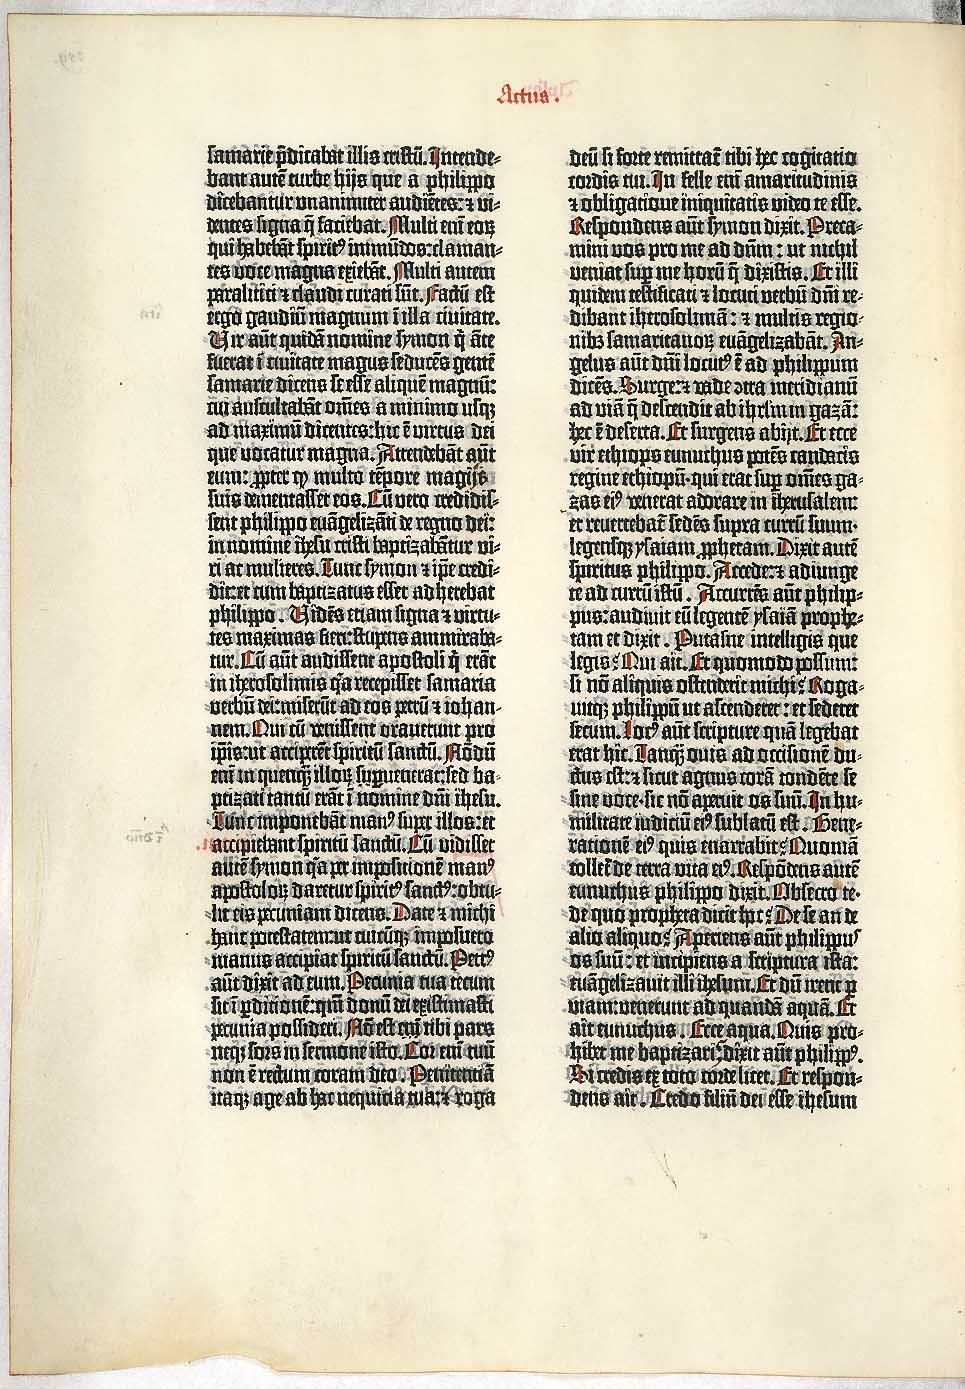 Actus.
samarie p̄dicabat illis cristū. Intende⸗
bant autē turbe hijs que a philippo
dicebantur vnanimiter audiētes: ⁊ vi⸗
dentes signa q̄ faciebat. Multi eni eoꝝ
qui habebāt spiritꝰ inmūdos: claman⸗
tes voce magna exiebāt. Multi autem
paralitici ⁊ claudi curati sūt. Factū est
ergo gaudiū magnum ī illa ciuitate.
Vir aūt quidā nomine symon q̄ āte
fuerat ī ciuitate magus seducēs gentē
samarie dicens se esse aliquē magnū:
cui auscultabāt om̄es a minimo usqꝫ
ad maximū dicentes: hic ē virtus dei
que vocatur magna. Attendebāt aūt
eum: ꝓpter qꝫ multo tēpore magijs
suis dementasset eos. Cū vero credidis⸗
sent philippo euāgelizāti de regno dei:
in nomine ihesu cristi baptizabātur vi⸗
ri ac mulieres. Tunc symon ⁊ ip̄e credi⸗
dit: et cum baptizatus esset adherebat
philippo. Vidēs etiam signa ⁊ virtu⸗
tes maximas fieri: stupens ammiraba⸗
tur. Cū aūt audissent apostoli q̄ erāt
in iherosolimis q̄a recepisset samaria
verbū dei: miserūt ad eos petrū ⁊ iohan⸗
nem. Qui cū venissent orauerunt pro
ip̄is: ut acciperēt spiritū sanctū. Nōdū
eni in quēqꝫ illoꝝ suꝑuenerat: sed ba⸗
ptizati tantū erāt ī nomine dm̄i ihesu.
Tunc imponebāt manꝰ super illos: et
accipiebant spiritū sanctū. Cū vidisset
autē symon q̄a per impositionē manꝰ
apostoloꝝ daretur spiritꝰ sanctꝰ: obtu⸗
lit eis pecuniam dicens. Date ⁊ michi
hanc potestatem: ut cuicūqꝫ imposuero
manus accipiat spiritū sanctū. Petrꝰ
aūt dixit ad eum. Pecunia tua tecum
sit ī ꝑditionē: qm̄ donū dei existimasti
pecunia possideri. Nō est eni tibi pars
neqꝫ sors in sermone isto. Cor eni tuū
non ē rectum coram deo. Penitentiā
itaqꝫ age ab hac nequicia tua: ⁊ roga
deū si forte remittat̄ tibi hec cogitatio
cordis tui. In felle eni amaritudinis
⁊ obligatione iniquitatis video te esse.
Respondens aūt symon dixit. Preca⸗
mini vos pro me ad dn̄m: ut nichil
veniat suꝑ me horū q̄ dixistis. Et illi
quidem testificati ⁊ locuti verbū dm̄i re⸗
dibant iherosolimā: ⁊ multis regio⸗
nibꝫ samaritanoꝝ euāgelizabāt. An⸗
gelus aūt dm̄i locutꝰ ē ad philippum
dicēs. Surge: ⁊ vade ɔtra meridianū
ad viā q̄ descendit ab ihrl̄m in gazā:
hec ē deserta. Et surgens abijt. Et ecce
vir ethiops eunuchus potēs candacis
regine ethiopū· qui erat suꝑ om̄es ga⸗
zas eiꝰ venerat adorare in iherusalem:
et reuertebat̄ sedēs supra currū suum·
legensqꝫ ysaiam ꝓphetam. Dixit autē
spiritus philippo. Accede: ⁊ adiunge
te ad currū istū. Accurrēs aūt philip⸗
pus: audiuit eū legentē ysaiā prophe⸗
tam et dixit. Putasne intelligis que
legis? Qui ait. Et quomodo possum:
si nō aliquis ostenderit michi? Roga⸗
uitqꝫ philippū ut ascenderet: et sederet
secum. Locꝰ aūt scripture quā legebat
erat hic. Tanqꝫ ouis ad occisionē du⸗
ctus est: ⁊ sicut agnus corā tondēte se
sine voce· sic nō aperuit os suū. In hu⸗
militate iudiciū eiꝰ sublatū est. Gene⸗
rationē eiꝰ quis enarrabit? Quoniā
tollet̄ de terra vita eiꝰ. Respōdens autē
eunuchus philippo dixit. Obsecro te·
de quo propheta dicit hoc? De se an de
alio aliquo? Aperiens aūt philippus
os suū: et incipiens a scriptura ista:
euāgelizauit illi ihesum. Et dū irent ꝑ
viam: venerunt ad quandā aquā. Et
ait eunuchus. Ecce aqua. Quis pro⸗
hibet me baptizari? dixit aūt philippꝰ.
Si credis ex toto corde licet. Et respon⸗
dens ait. Credo filiū dei esse ihesum